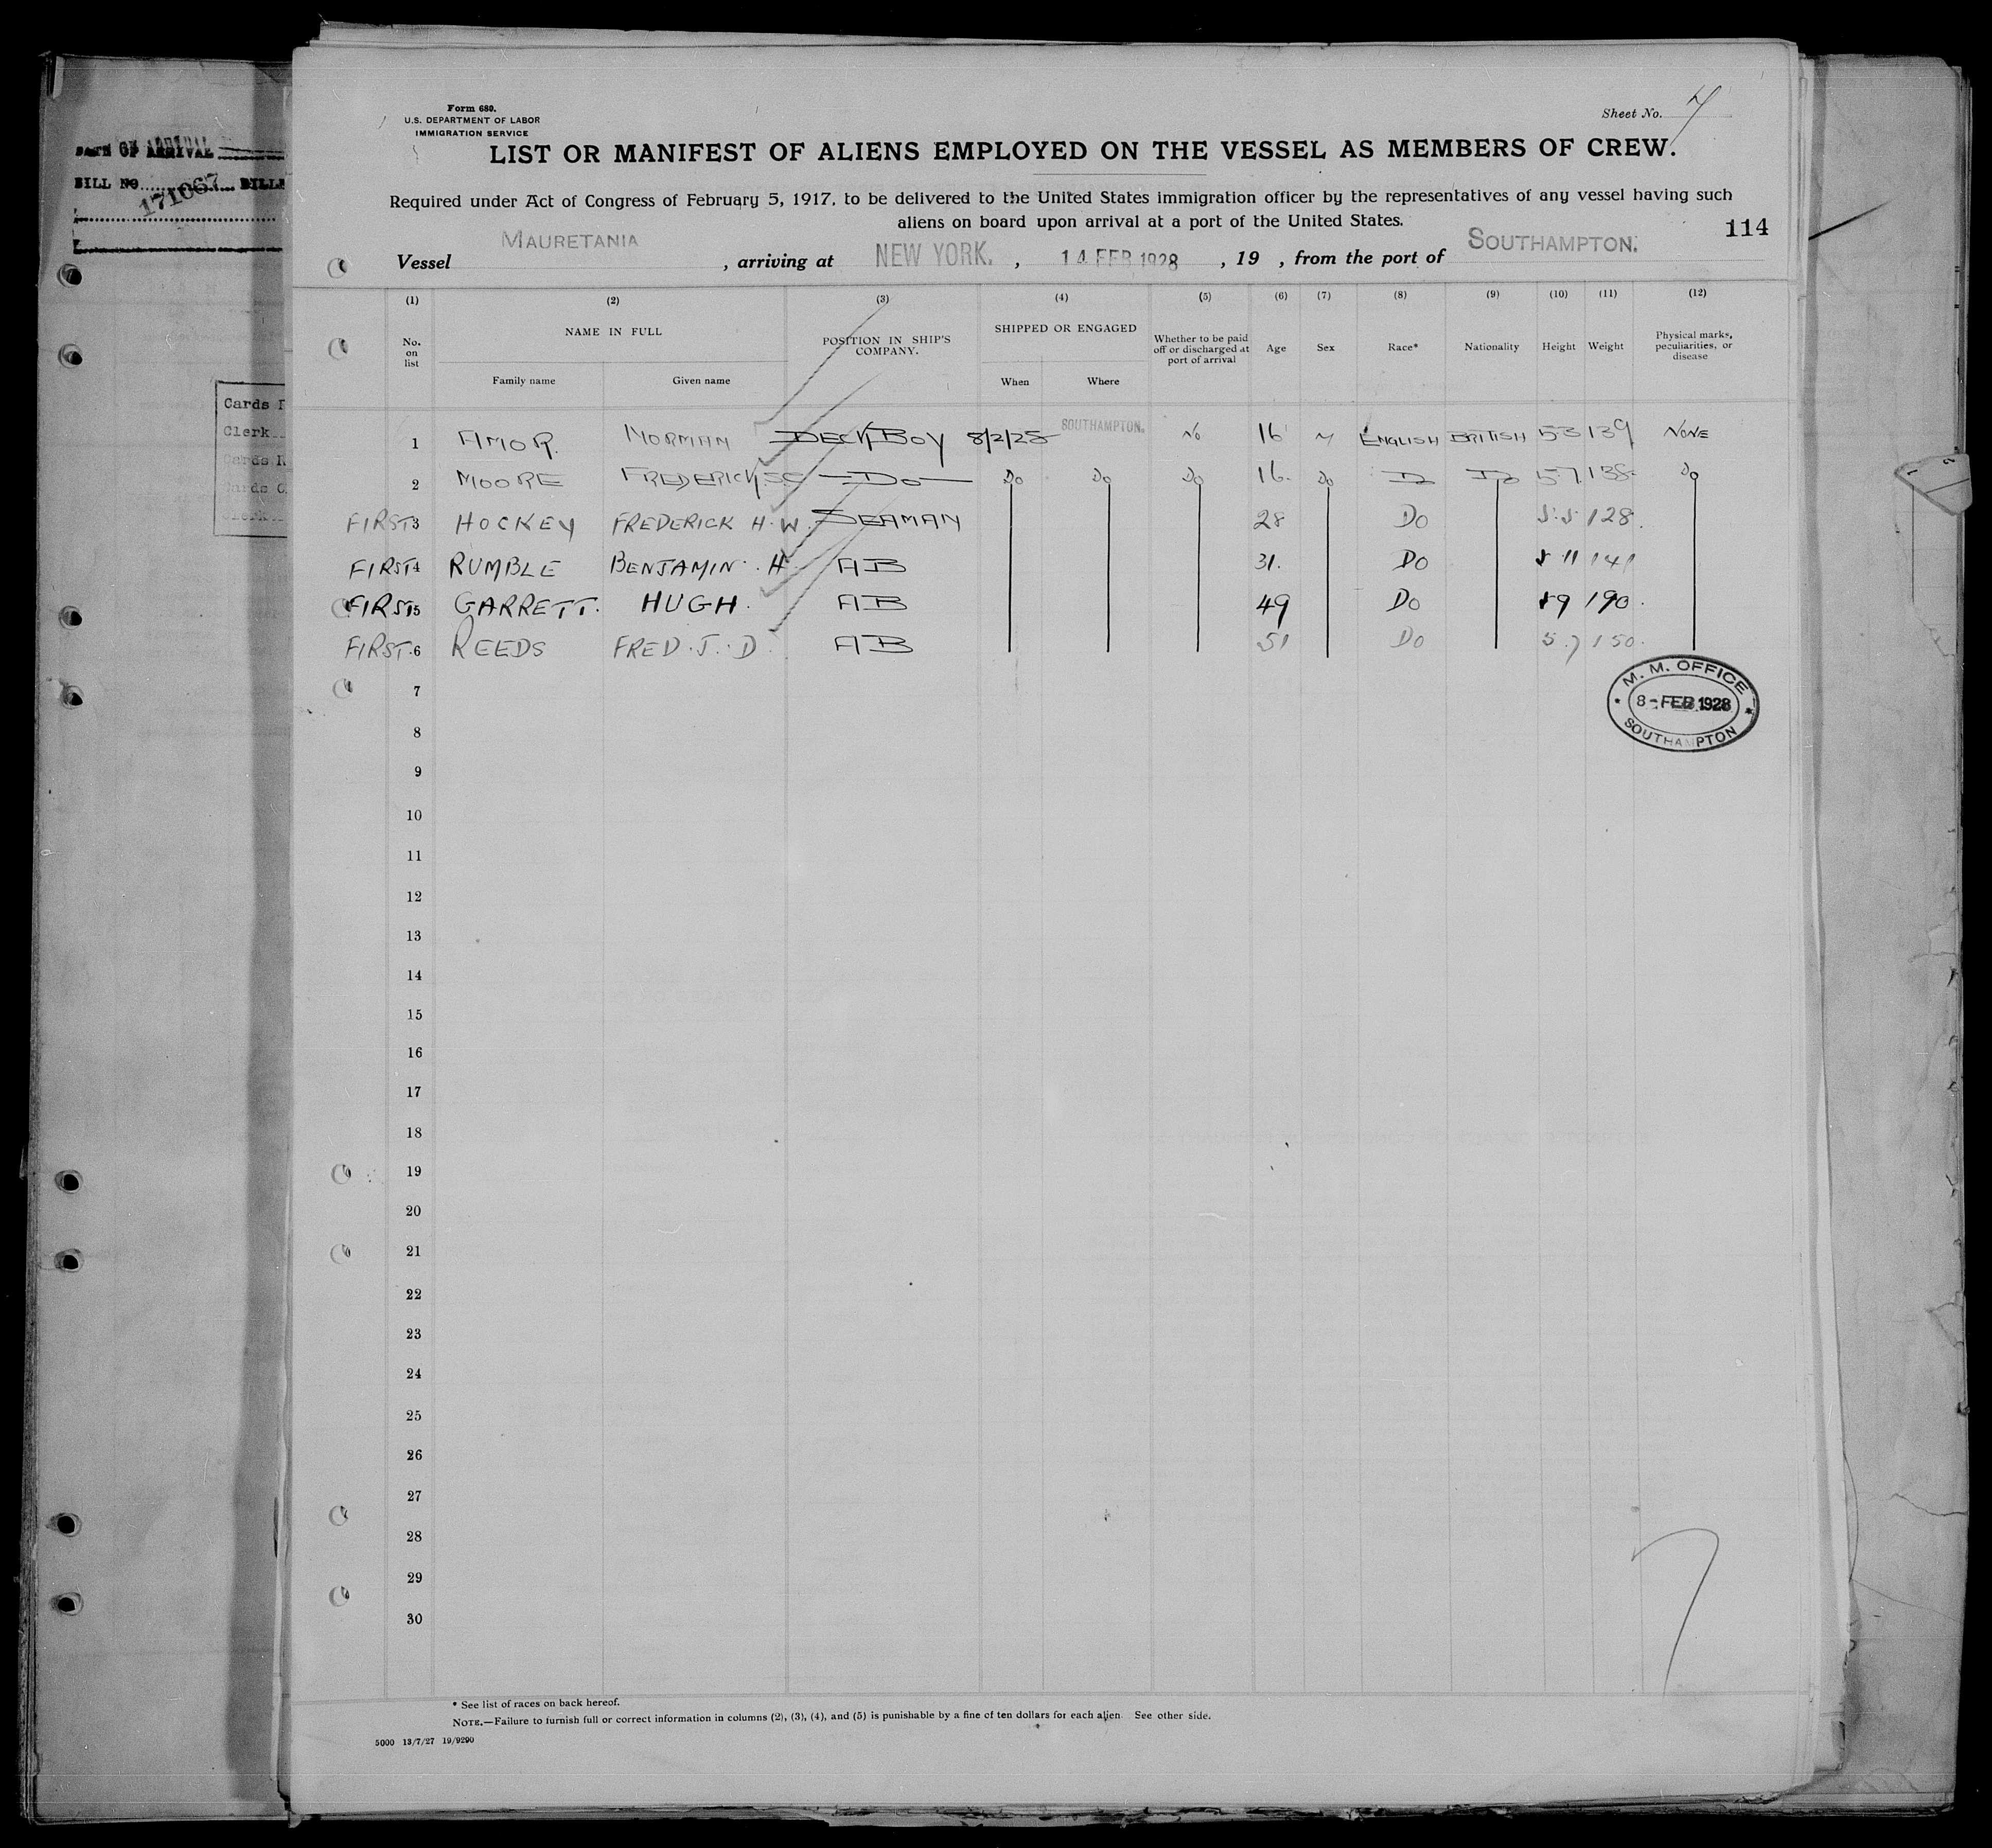 Form 680.
U.S. DEPARTMENT OF LABOR
IMMIGRATION SERVICE
Sheet No.
LIST OR MANIFEST OF ALIENS EMPLOYED ON THE VESSEL AS MEMBERS OF CREW.
Required under Act of Congress of February 5, 1917, to be delivered to the United States immigration officer by the representatives of any vessel having such
aliens on board upon arrival at a port of the United States.
114
Vessel MAURETANIA, arriving at NEW YORK., 14 FEB 1928, 19 , from the port of SOUTHAMPTON.
(1) (2) (3) (4) (5) (6) (7) (8) (9) (10) (11) (12)
No. on list NAME IN FULL POSITION IN SHIP'S COMPANY. SHIPPED OR ENGAGED Whether to be paid off or discharged at port of arrival Age Sex Race* Nationality Height Weight Physical marks, peculiarities, or disease
Family name Given name When Where
1 AMOR. NORMAN DECK BOY 8/2/28 SOUTHAMPTON. No 16 M ENGLISH BRITISH 5 3 139 NONE
2 MOORE FREDERICK Do Do Do Do 16. Do Do Do 5 7. 138. Do
FIRST 3 HOCKEY FREDERICK H. W. SEAMAN 28 Do 5.5 128.
FIRST 4 RUMBLE BENJAMIN. H. AB 31. Do 5 11 141
FIRST 5 GARRETT. HUGH. AB 49 Do 5 9 190.
FIRST. 6 REEDS FRED. J. D. AB 51 Do 5.7 150.
7
M. M. OFFICE
8 - FEB 1928
SOUTHAMPTON
8
9
10
11
12
13
14
15
16
17
18
19
20
21
22
23
24
25
26
27
28
29
30
7
* See list of races on back hereof.
NOTE.—Failure to furnish full or correct information in columns (2), (3), (4), and (5) is punishable by a fine of ten dollars for each alien. See other side.
5000 13/7/27 19/9290
DATE OF ARRIVAL
BILL NO. 171067
Cards
Clerk
Cards
Cards
Clerk